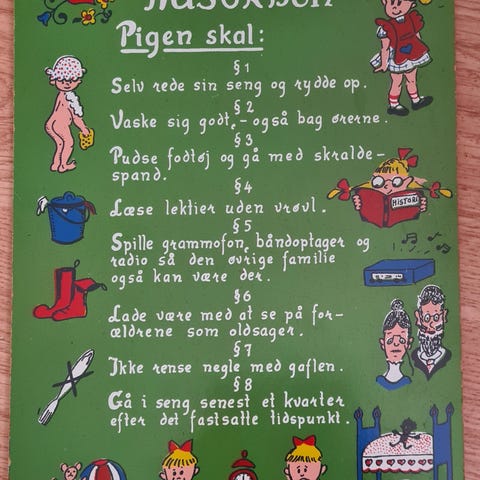 Pigen skal:
§ 1
Selv rede sin seng og rydde op.
§ 2
Vaske sig godt, - også bag ørerne.
§ 3
Pudse fodtøj og gå med skralde-
spand.
§ 4
Læse lektier uden vrøvl.
HISTORI
§ 5
Spille grammofon, båndoptager og
radio så den øvrige familie
også kan være der.
§ 6
Lade være med at se på for-
ældrene som oldsager.
§ 7
Ikke rense negle med gaflen.
§ 8
Gå i seng senest et kvarter
efter det fastsatte tidspunkt.